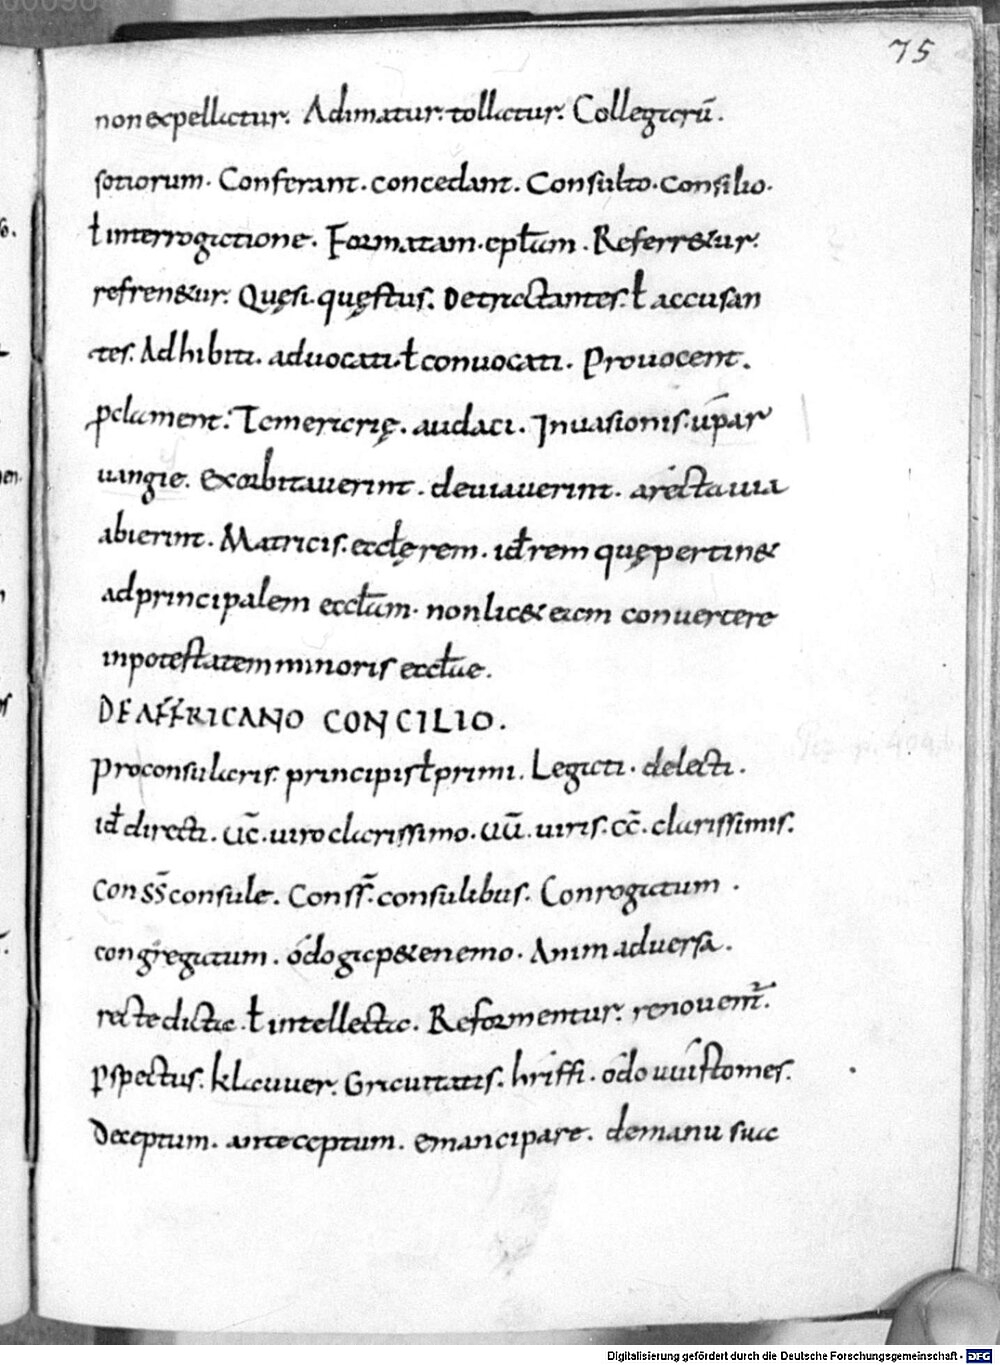 75
non expellatur. Adimatur. tollatur. Collegarū.
sotiorum. Conferant. concedant. Consulto. consilio.
ł interrogatione. Formatam. epłam. Referr&ur.
refren&ur. Quęsi. quęstus. Detractantes. ł accusan
tes. Adhibiti. aduocati. ł conuocati. Prouocent.
ꝓclament. Temerarię. audaci. Inuasionis. ūpar
uangie. Exorbitauerint. deuiauerint. arectauia
abierint. Matricis. eccłę rem. iđ rem quę pertin&
ad principalem eccłam. non lic& eam conuertere
inpotestatem minoris eccłae.
DE AFFRICANO CONCILIO.
Proconsularis. principis ł primi. Legati. delecti.
iđ directi. Uc̄. uiro clarissimo. uū. uiris. cc̄. clarissimis.
Cons̄s̄ consule. Conss̄. consulibus. Conrogatum.
congregatum. ódogap&enemo. Animaduersa.
recte dicta. ł intellecta. Reformentur. renouent̄.
ꝑspectus. klauuer. Grauitatis. hriffi. ódo uuístomes.
Deceptum. anteceptum. emancipare. demanu suae
Digitalisierung gefördert durch die Deutsche Forschungsgemeinschaft - DFG